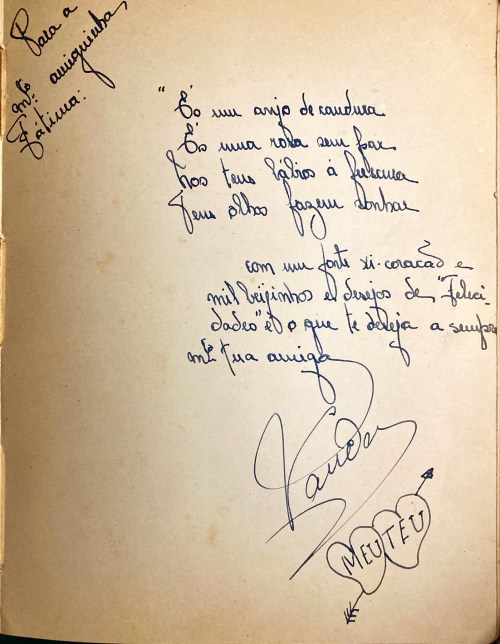 Para a
mª amiguinha
Fátima:
"És um anjo de candura
És uma rosa sem par
Nos teus lábios á frescura
Teus olhos fazem sonhar
com um forte xi-coração e
mil beijinhos e desejos de "Felici-
dades" é o que te deseja a sempre
mª tua amiga
MEU TEU